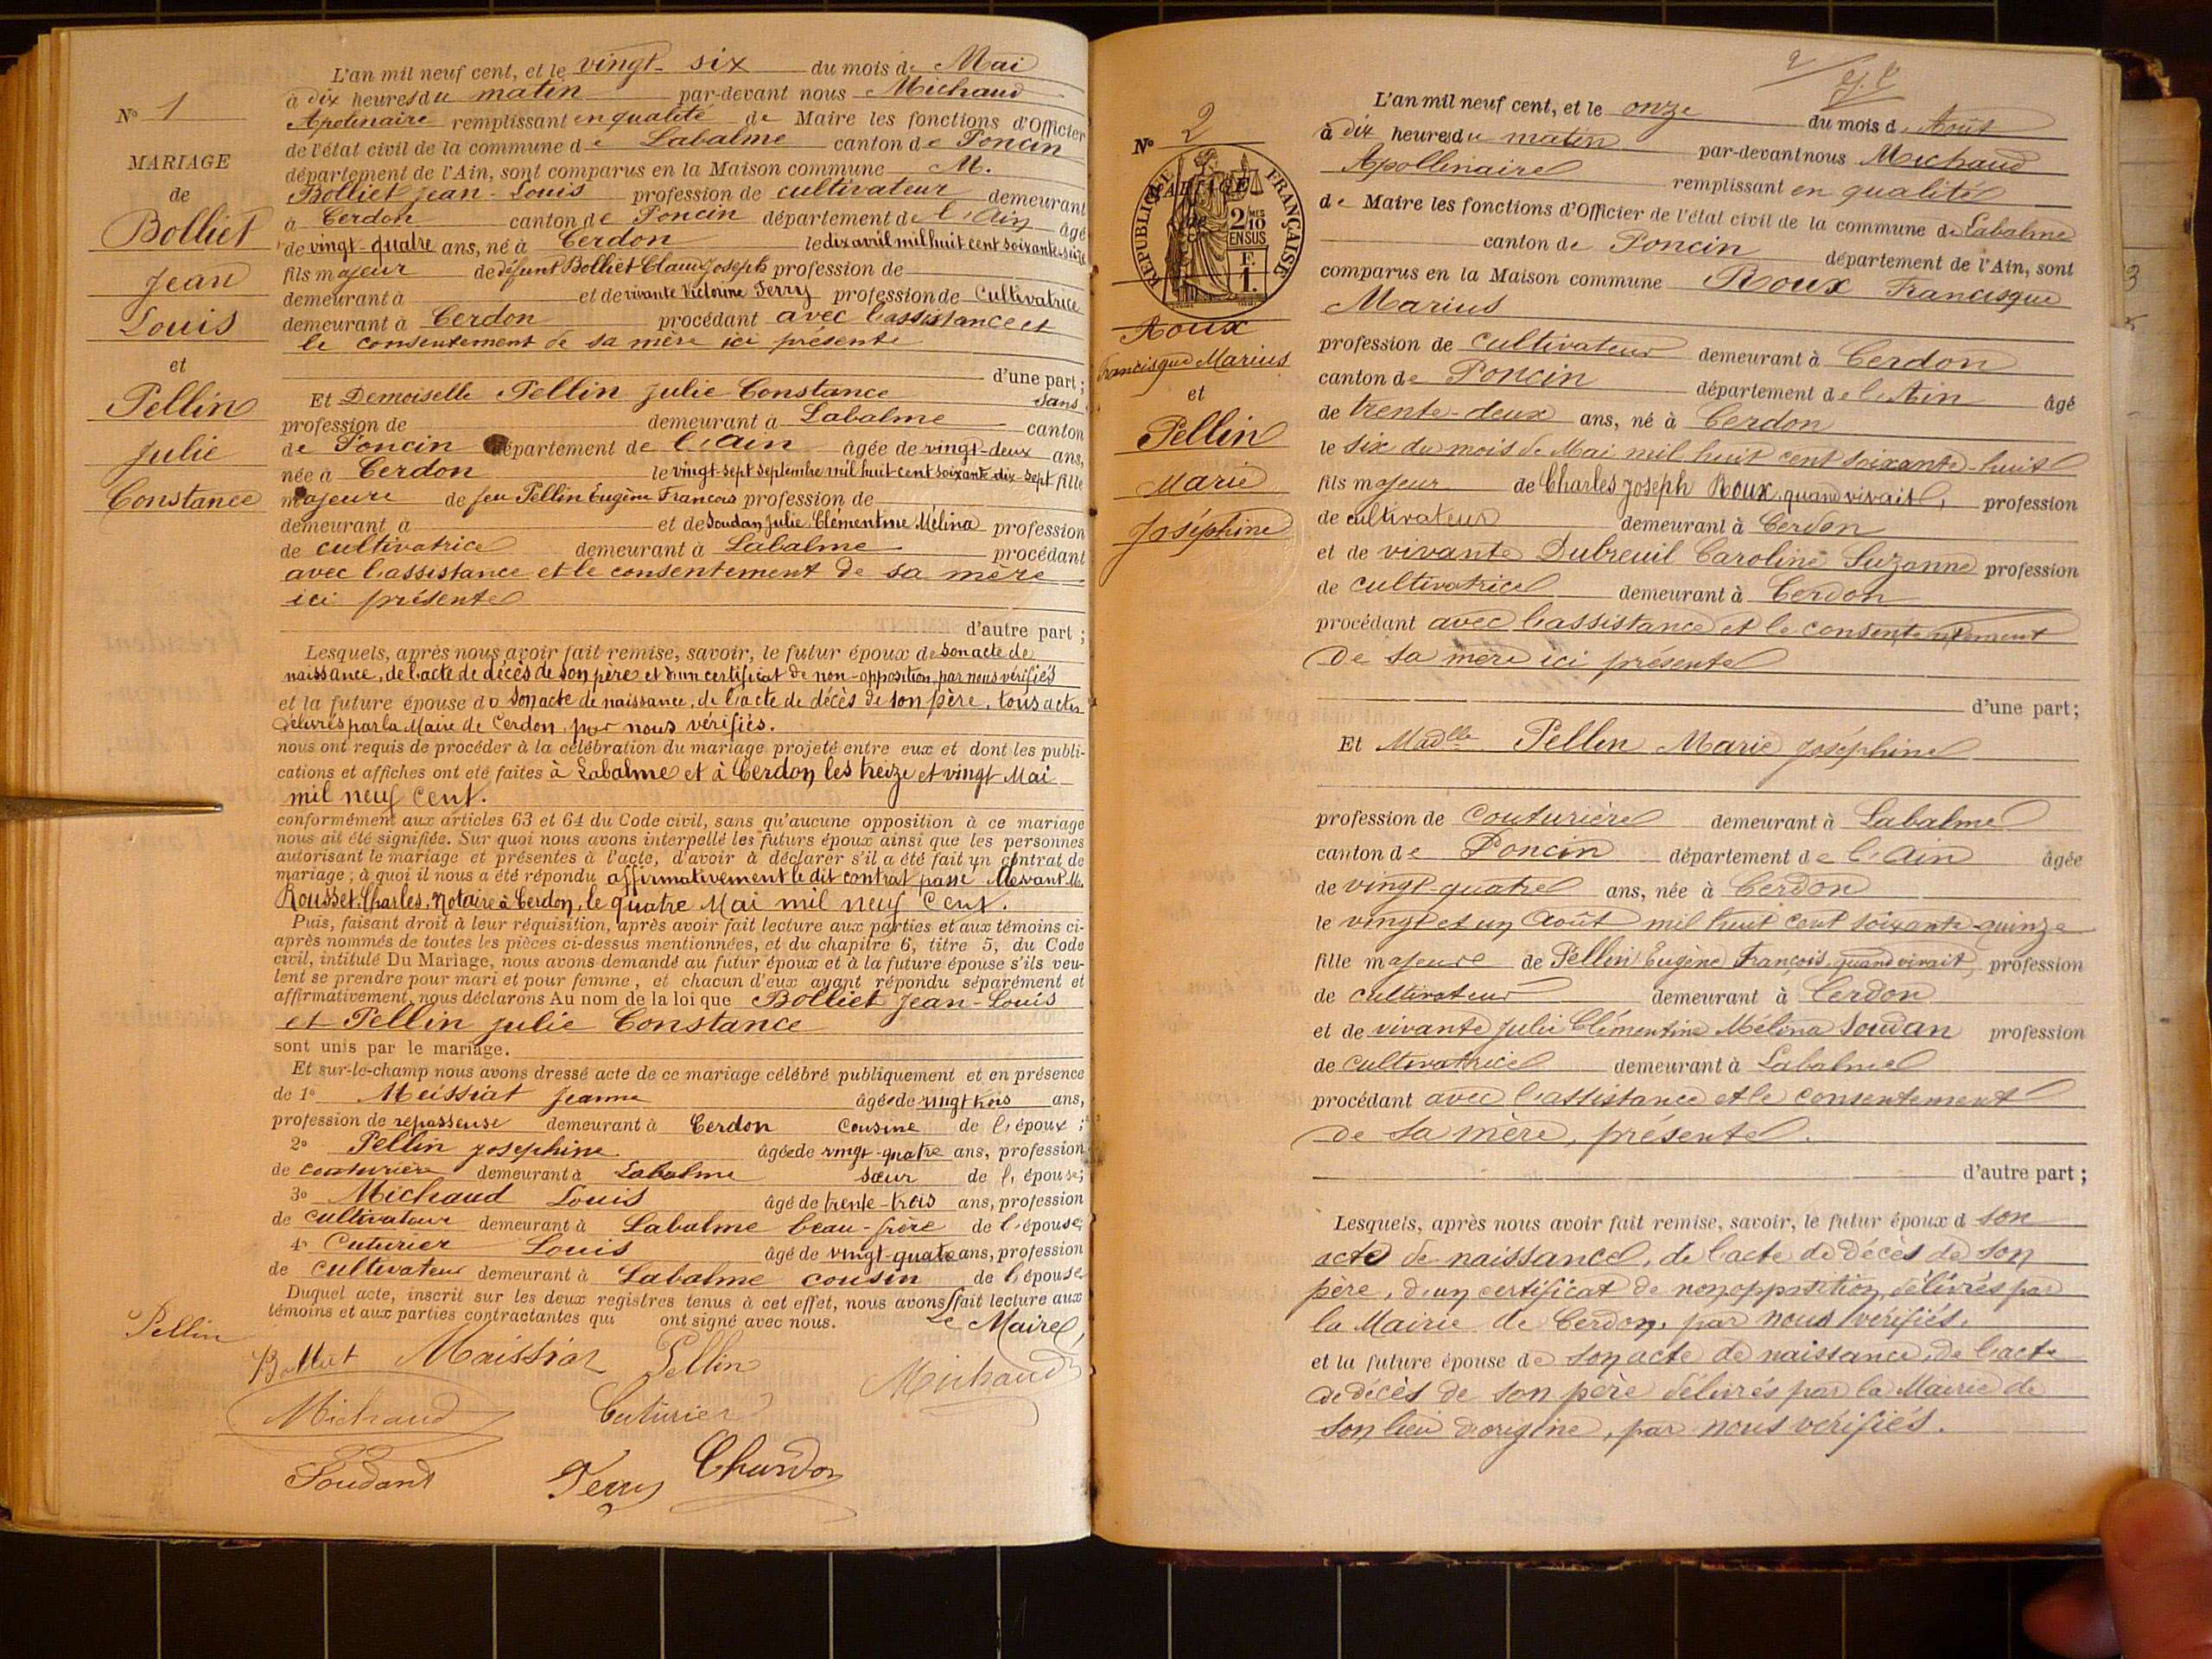 L'an mil neuf cent, et le vingt-six du mois de Mai
à dix heures du matin par-devant nous Michaud
Apolinaire remplissant en qualité de Maire les fonctions d'Officier
de l'état civil de la commune de Labalme canton de Poncin
département de l'Ain, sont comparus en la Maison commune M.
Bolliet Jean-Louis profession de cultivateur demeurant
à Cerdon canton de Poncin département de l'Ain âgé
de vingt-quatre ans, né à Cerdon le dix avril mil huit cent soixante-seize
fils majeur de défunt Bolliet Claude Joseph profession de
demeurant à et de vivante Victorine Ferry profession de Cultivatrice
demeurant à Cerdon procédant avec l'assistance et
le consentement de sa mère ici présente
d'une part;
Et Demoiselle Pellin Julie Constance sans
profession de demeurant à Labalme canton
de Poncin département de l'Ain âgée de vingt-deux ans,
née à Cerdon le vingt-sept septembre mil huit cent soixante-dix-sept fille
majeure de feu Pellin Eugène François profession de
demeurant à et de Soudan Julie Clémentine Mélina profession
de cultivatrice demeurant à Labalme procédant
avec l'assistance et le consentement de sa mère
ici présente
d'autre part;
Lesquels, après nous avoir fait remise, savoir, le futur époux de son acte de
naissance, de l'acte de décès de son père et d'un certificat de non-opposition, par nous vérifiés
et la future épouse de son acte de naissance, de l'acte de décès de son père, tous actes
délivrés par la Mairie de Cerdon, par nous vérifiés.
nous ont requis de procéder à la célébration du mariage projeté entre eux et dont les publi-
cations et affiches ont été faites à Labalme et à Cerdon les treize et vingt Mai
mil neuf cent.
conformément aux articles 63 et 64 du Code civil, sans qu'aucune opposition à ce mariage
nous ait été signifiée. Sur quoi nous avons interpellé les futurs époux ainsi que les personnes
autorisant le mariage et présentes à l'acte, d'avoir à déclarer s'il a été fait un contrat de
mariage; à quoi il nous a été répondu affirmativement le dit contrat passé devant M.
Rousset Charles, Notaire à Cerdon, le quatre Mai mil neuf cent.
Puis, faisant droit à leur réquisition, après avoir fait lecture aux parties et aux témoins ci-
après nommés de toutes les pièces ci-dessus mentionnées, et du chapitre 6, titre 5, du Code
civil, intitulé Du Mariage, nous avons demandé au futur époux et à la future épouse s'ils veu-
lent se prendre pour mari et pour femme, et chacun d'eux ayant répondu séparément et
affirmativement, nous déclarons Au nom de la loi que Bolliet Jean-Louis
et Pellin Julie Constance
sont unis par le mariage.
Et sur-le-champ nous avons dressé acte de ce mariage célébré publiquement et en présence
de 1° Meissiat Jeanne âgée de vingt trois ans,
profession de repasseuse demeurant à Cerdon cousine de l'époux;
2° Pellin Josephine âgée de vingt-quatre ans, profession
de couturière demeurant à Labalme sœur de l'épouse;
3° Michaud Louis âgé de trente-trois ans, profession
de cultivateur demeurant à Labalme beau-frère de l'épouse;
4° Cuturier Louis âgé de vingt-quatre ans, profession
de cultivateur demeurant à Labalme cousin de l'épouse
Duquel acte, inscrit sur les deux registres tenus à cet effet, nous avons fait lecture aux
témoins et aux parties contractantes qui ont signé avec nous. Le Maire,
Pellin
Bolliet Maissiat Pellin Michaud
Michaud Cuturier
Soudant Ferry Chardon
N° 1
MARIAGE
de
Bolliet
Jean
Louis
et
Pellin
Julie
Constance
2
N° 2
RÉPUBLIQUE FRANÇAISE
MARIAGE
de
2/10 MES
EN SUS
F.
1.
Roux
Francisque Marius
et
Pellin
Marie
Joséphine
L'an mil neuf cent, et le onze du mois d Août
à dix heures du matin par-devant nous Michaud
Apollinaire remplissant en qualité
de Maire les fonctions d'Officier de l'état civil de la commune de Labalme
canton de Poncin département de l'Ain, sont
comparus en la Maison commune Roux Francisque
Marius
profession de cultivateur demeurant à Cerdon
canton de Poncin département de l'Ain âgé
de trente-deux ans, né à Cerdon
le six du mois de Mai mil huit cent soixante-huit
fils majeur de Charles Joseph Roux, quand vivait, profession
de cultivateur demeurant à Cerdon
et de vivante Dubreuil Caroline Suzanne profession
de cultivatrice demeurant à Cerdon
procédant avec l'assistance et le consentement
de sa mère ici présente
d'une part;
Et Madlle Pellin Marie Joséphine
profession de couturière demeurant à Labalme
canton de Poncin département de l'Ain âgée
de vingt-quatre ans, née à Cerdon
le vingt et un Août mil huit cent soixante-quinze
fille majeure de Pellin Eugène François, quand vivait, profession
de cultivateur demeurant à Cerdon
et de vivante Julie Clémentine Mélina Soudan profession
de cultivatrice demeurant à Labalme
procédant avec l'assistance et le consentement
de sa mère, présente.
d'autre part;
Lesquels, après nous avoir fait remise, savoir, le futur époux d son
acte de naissance, de l'acte de décès de son
père, d'un certificat de non opposition, délivrés par
la Mairie de Cerdon, par nous vérifiés.
et la future épouse de son acte de naissance, de l'acte
de décès de son père délivrés par la Mairie de
son lieu d'origine, par nous vérifiés.
3